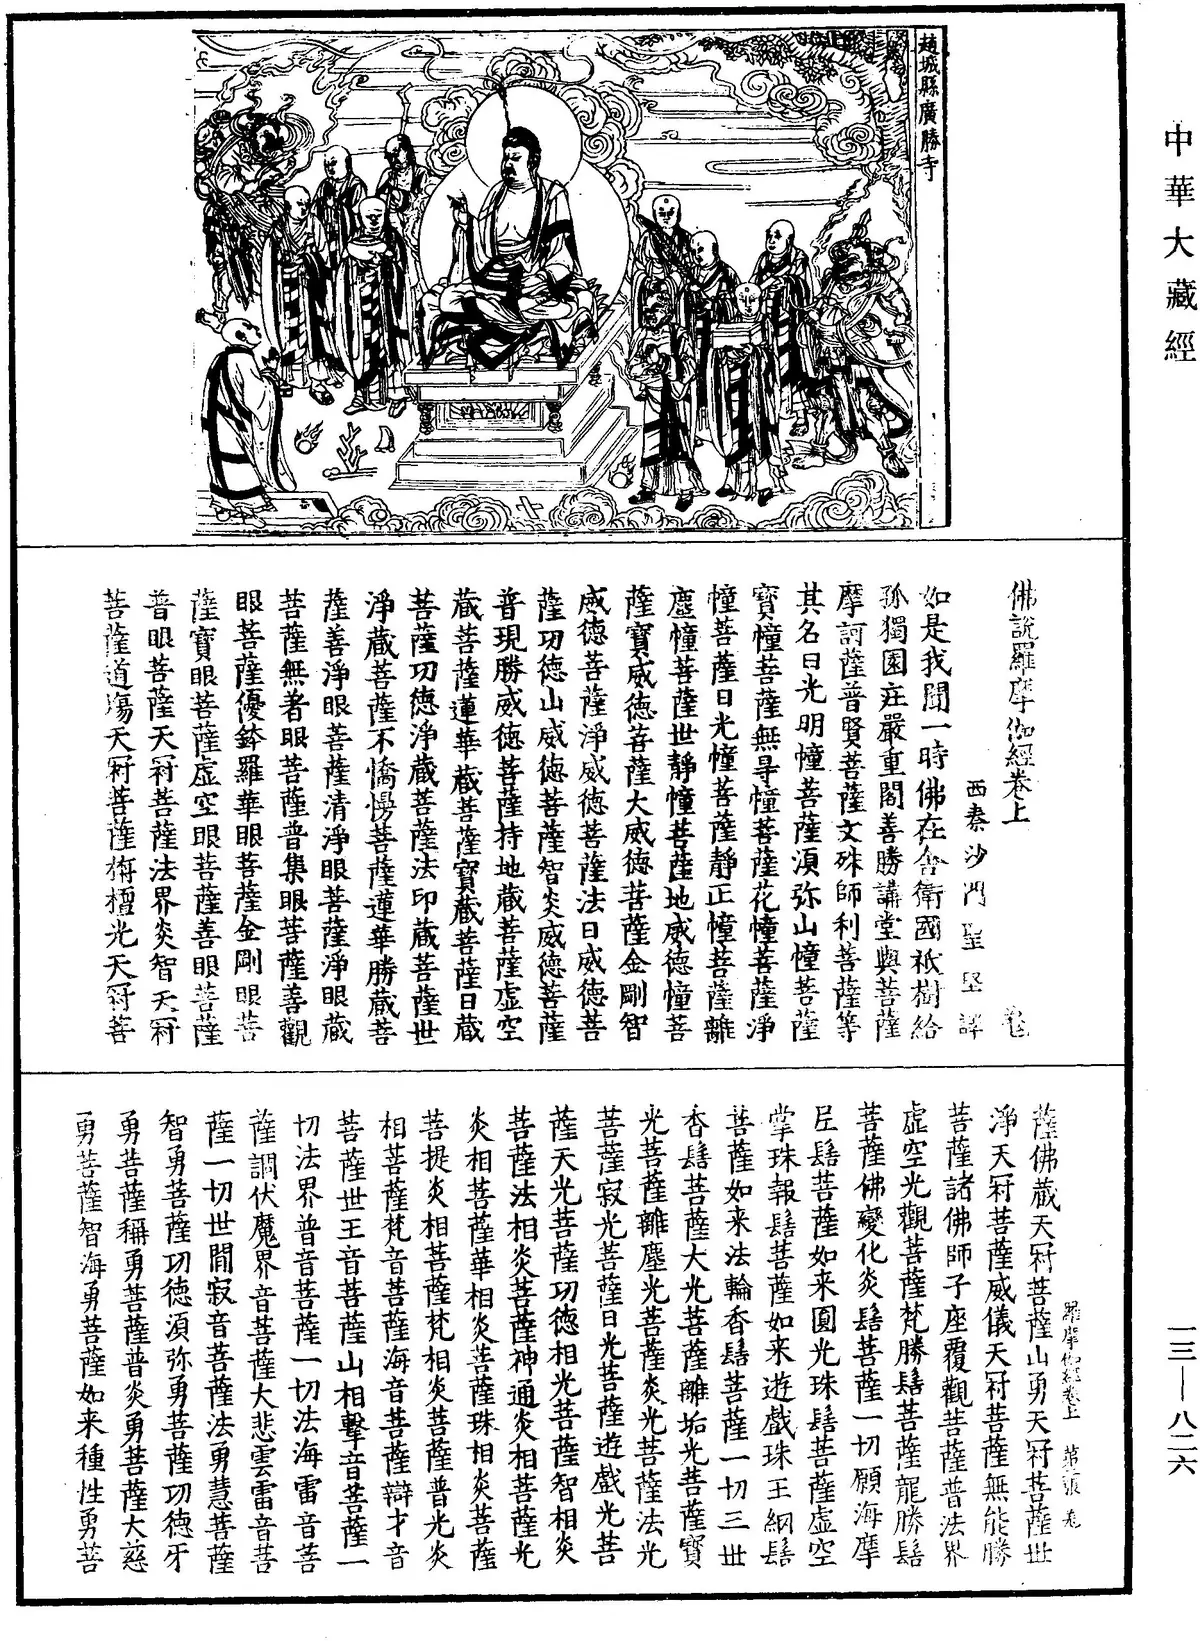 中華大藏經
趙城縣廣勝寺
佛說羅摩伽經卷上
西秦沙門聖堅譯
如是我聞一時佛在舍衛國祇樹給
孤獨園莊嚴重閣善勝講堂與菩薩
摩訶薩普賢菩薩文殊師利菩薩等
其名曰光明幢菩薩須弥山幢菩薩
寶幢菩薩無㝵幢菩薩花幢菩薩淨
幢菩薩日光幢菩薩靜正幢菩薩離
塵幢菩薩世靜幢菩薩地威德幢菩
薩寶威德菩薩大威德菩薩金剛智
威德菩薩淨威德菩薩法日威德菩
薩功德山威德菩薩智炎威德菩薩
普現勝威德菩薩持地藏菩薩虛空
藏菩薩蓮華藏菩薩寶藏菩薩日藏
菩薩功德淨藏菩薩法印藏菩薩世
淨藏菩薩不憍慢菩薩蓮華勝藏菩
薩善淨眼菩薩清淨眼菩薩淨眼藏
菩薩無著眼菩薩普集眼菩薩善觀
眼菩薩優鉢羅華眼菩薩金剛眼菩
薩寶眼菩薩虛空眼菩薩善眼菩薩
普眼菩薩天冠菩薩法界炎智天冠
菩薩道場天冠菩薩栴檀光天冠菩
薩佛藏天冠菩薩山勇天冠菩薩世
淨天冠菩薩威儀天冠菩薩無能勝
菩薩諸佛師子座覆觀菩薩普法界
虛空光觀菩薩梵勝髻菩薩龍勝髻
菩薩佛變化炎髻菩薩一切願海摩
尼髻菩薩如来圓光珠髻菩薩虛空
掌珠報髻菩薩如来遊戲珠王網髻
菩薩如来法輪香髻菩薩一切三世
香髻菩薩大光菩薩離垢光菩薩寶
光菩薩離塵光菩薩炎光菩薩法光
菩薩寂光菩薩日光菩薩遊戲光菩
薩天光菩薩功德相光菩薩智相炎
菩薩法相炎菩薩神通炎相菩薩光
炎相菩薩華相炎菩薩珠相炎菩薩
菩提炎相菩薩梵相炎菩薩普光炎
相菩薩梵音菩薩海音菩薩辯才音
菩薩世王音菩薩山相擊音菩薩一
切法界普音菩薩一切法海雷音菩
薩調伏魔界音菩薩大悲雲雷音菩
薩一切世間寂音菩薩法勇慧菩薩
智勇菩薩功德須弥勇菩薩功德牙
勇菩薩稱勇菩薩普炎勇菩薩大慈
勇菩薩智海勇菩薩如来種性勇菩
羅摩伽經卷上
一三—八二六